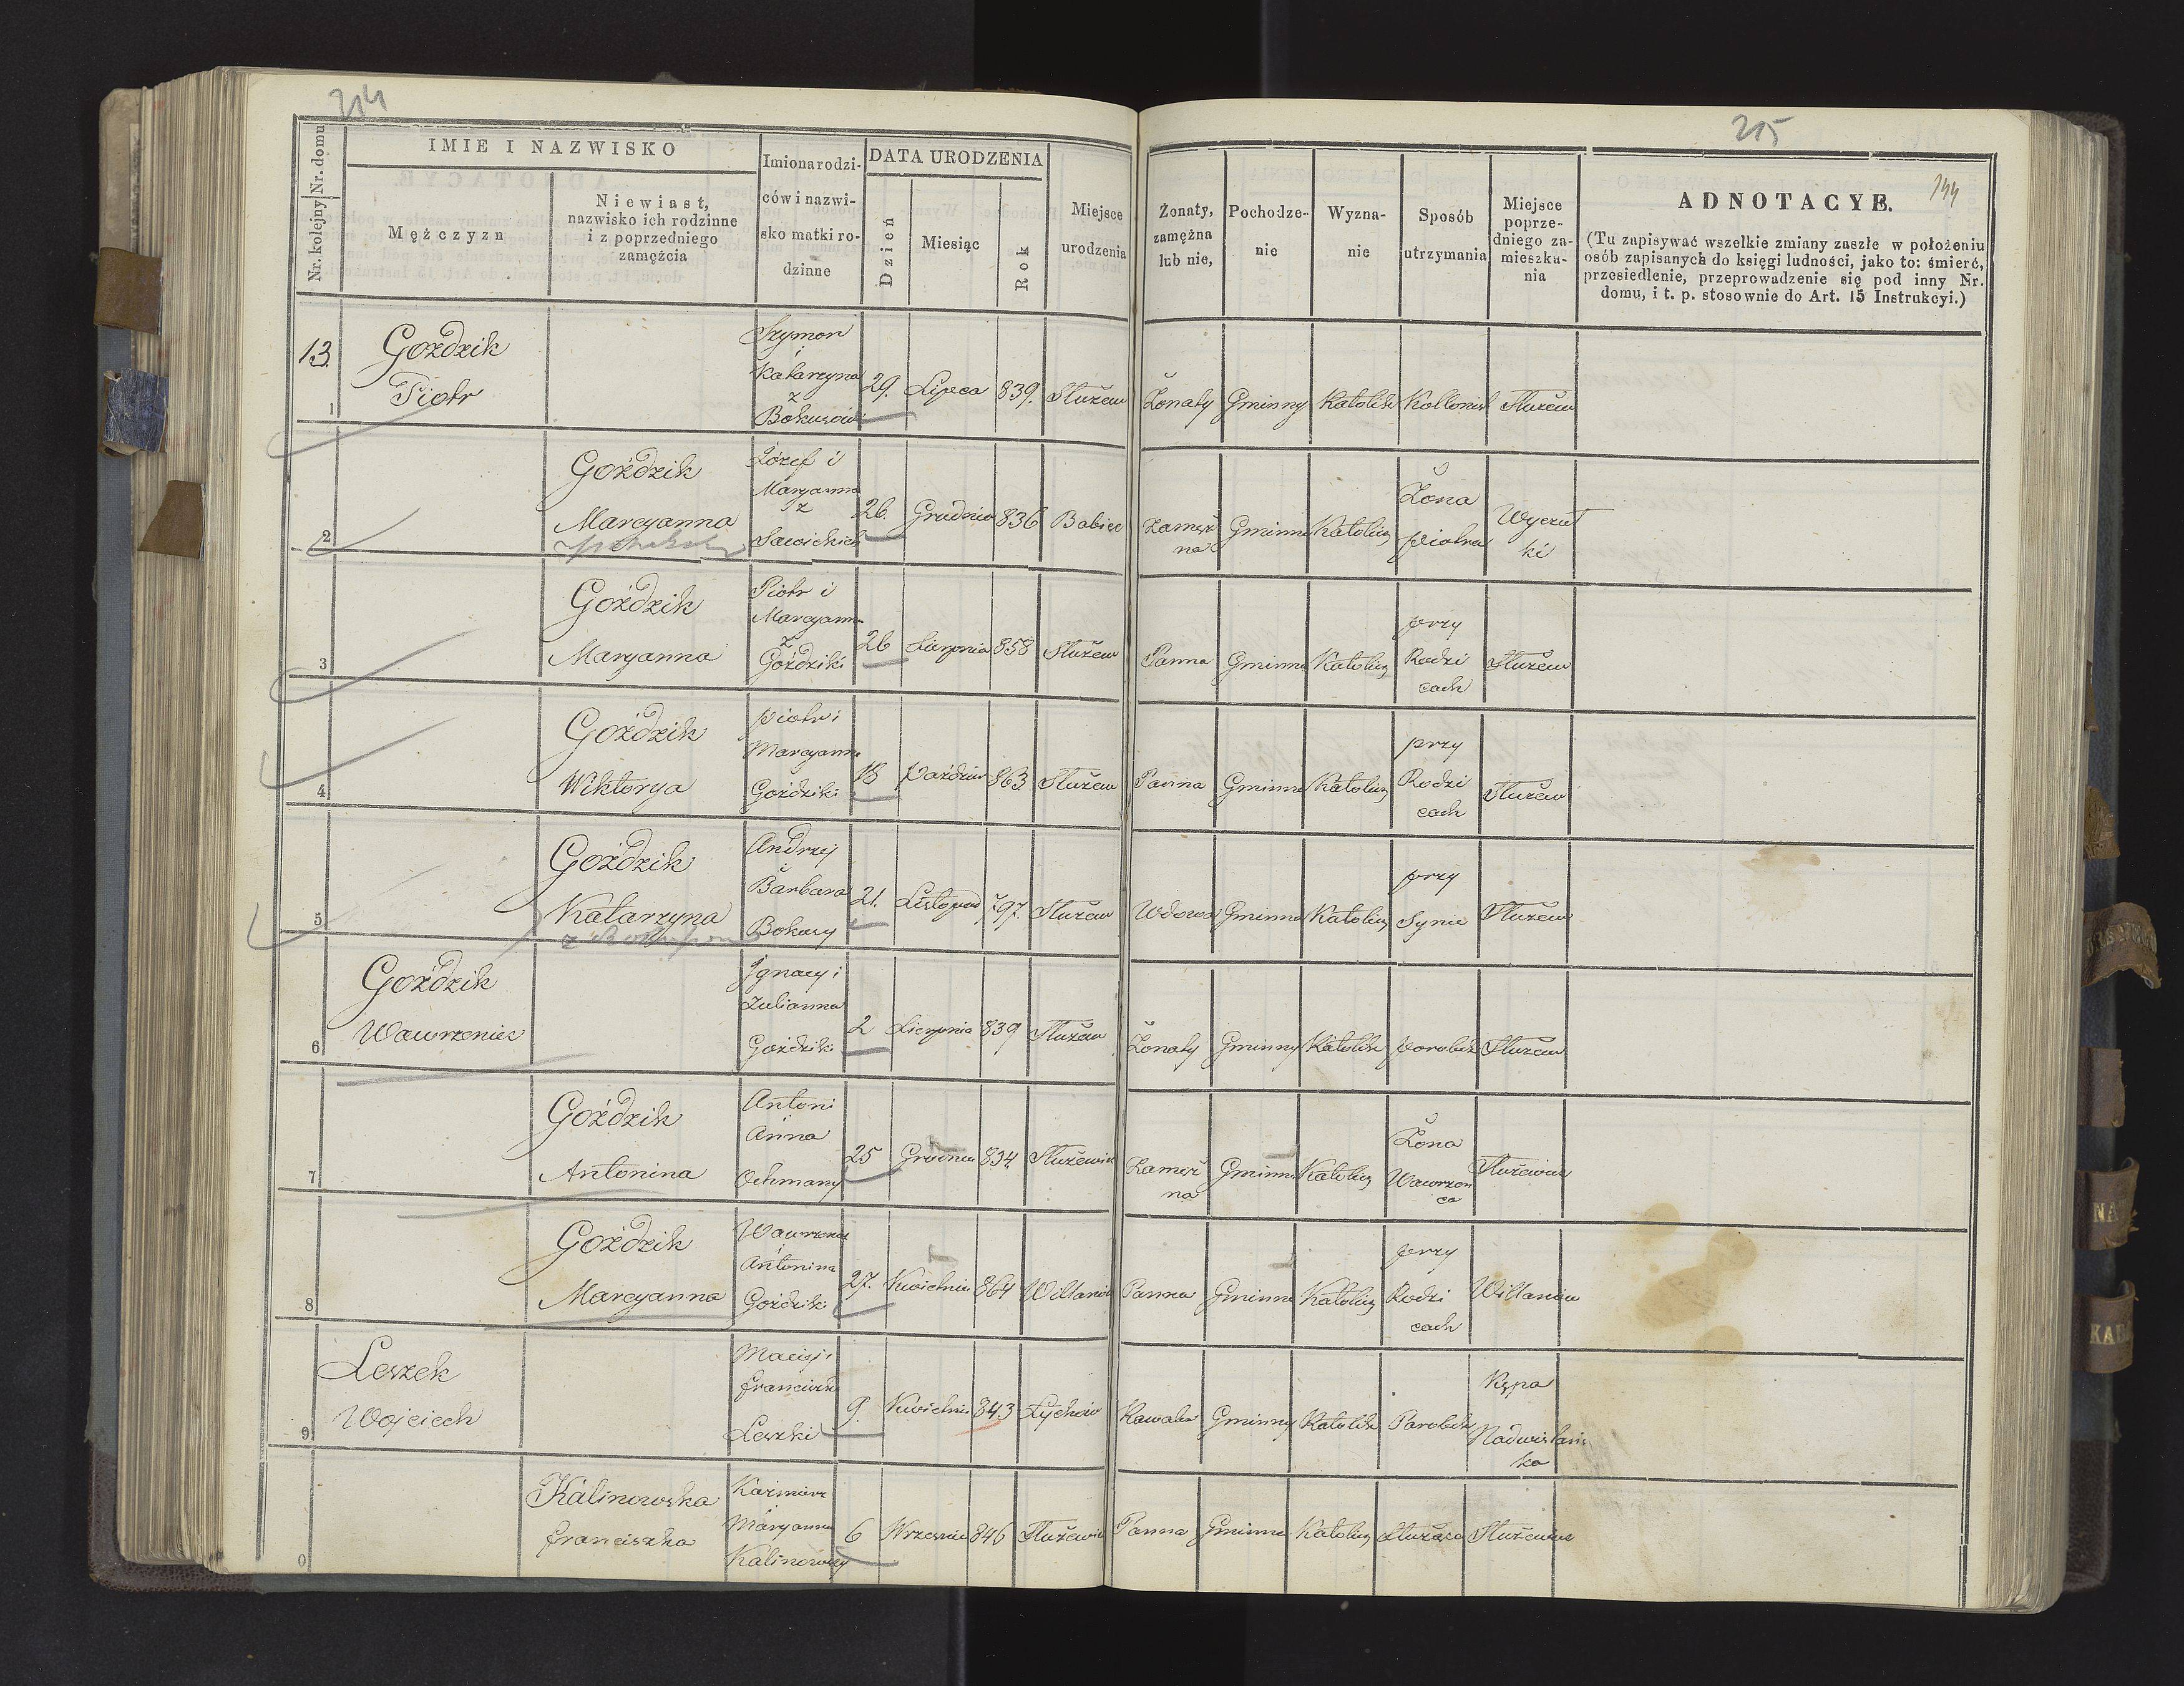 214
Nr. kolejny Nr. domu
IMIE I NAZWISKO
Mężczyzn
Niewiast,
nazwisko ich rodzinne
i z poprzedniego
zamężcia
Imiona rodzi-
ców i nazwi-
sko matki ro-
dzinne
DATA URODZENIA
Dzień
Miesiąc
Rok
Miejsce
urodzenia
215
Żonaty,
zamężna
lub nie,
Pochodze-
nie
Wyzna-
nie
Sposób
utrzymania
Miejsce
poprze-
dniego za-
mieszka-
nia
ADNOTACYE.
144
(Tu zapisywać wszelkie zmiany zaszłe w położeniu
osób zapisanych do księgi ludności, jako to: śmierć,
przesiedlenie, przeprowadzenie się pod inny Nr.
domu, i t. p. stosownie do Art. 15 Instrukcyi.)
13.
1
Goździk
Piotr
Szymon
i
Katarzyna
z
29. Lipca 839. Służew
Żonaty Gminny Katolik Kollonist Służew
2
Goździk
Maryanna
Józef i
Maryanna
z
Sawickich
26. Grudnia 836 Babice
Zamęż
na
Gminna Katolicz
Żona
Piotra
Wyczół
ki
3
Goździk
Maryanna
Piotr i
Maryanna
z
Goździki
26 Sierpnia 858 Służew
Panna Gminna Katolicz
przy
Rodzi
cach
Służew
4
Goździk
Wiktorya
Piotr i
Maryanna
Goździki
18 Paździer 863 Służew
Panna Gminna Katolicz
przy
Rodzi
cach
Służew
5
Goździk
Katarzyna
Andrzej
i
Barbara
Bokusy
21. Listopad 797. Służew
Wdowa Gminna Katolicz
przy
Synie
Służew
6
Goździk
Wawrzeniec
Ignacy i
Julianna
Goździki
2 Sierpnia 839 Służew
Żonaty Gminny Katolik parobek Służew
7
Goździk
Antonina
Antoni
i
Anna
Ochmany
25 Grudnia 834. Służewiec
Zamęż
na
Gminna Katolicz
Żona
Wawrzeń
ca
Służewiec
8
Goździk
Maryanna
Wawrzeniec
i
Antonina
Goździki
27. Kwietnia 864 Willanów
Panna Gminna Katolicz
przy
Rodzi
cach
Willanów
9
Leszek
Wojciech
Maciej i
Franciszka
Leszki
9. Kwietnia 843 Łychów
Kawaler Gminny Katolik Parobek
Kępa
Nadwiślańs
ka
0
Kalinowska
Franciszka
Kazmierz
i
Maryanna
Kalinowscy
6 Wrzesnia 846 Służewiec
Panna Gminna Katolicz Służąca Służewiec